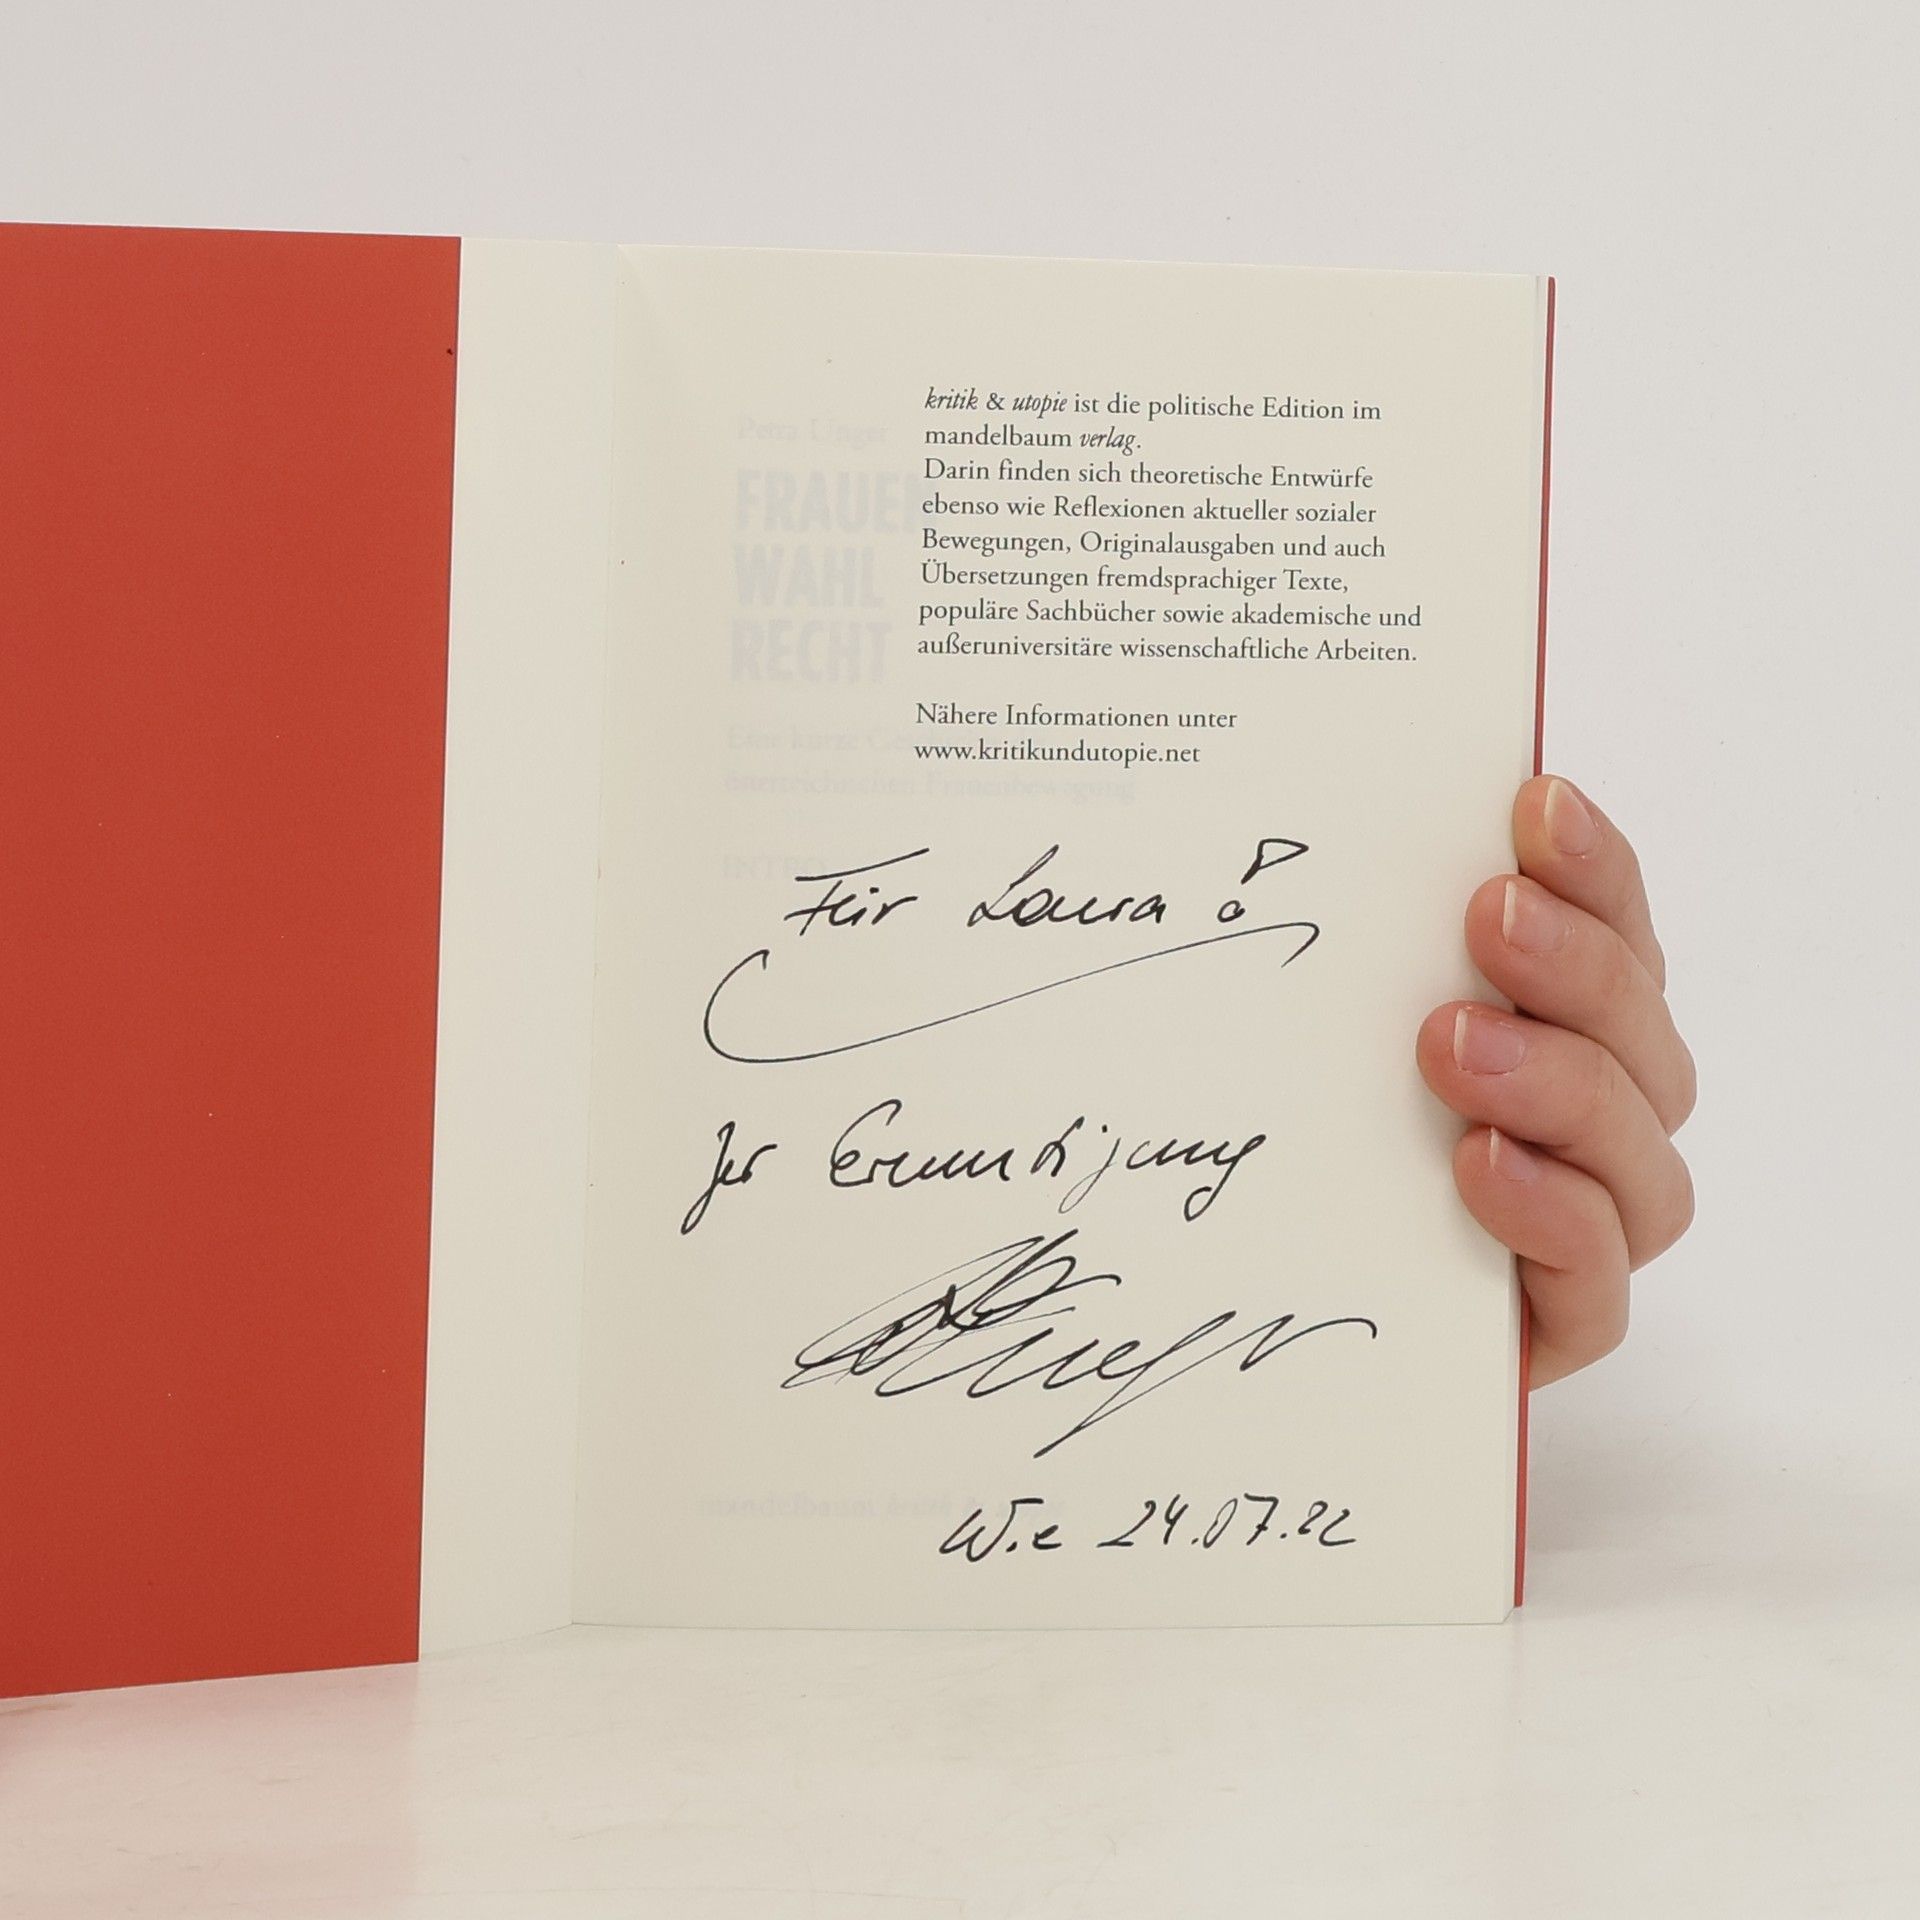 kritik & utopie ist die politische Edition im
mandelbaum verlag.
Darin finden sich theoretische Entwürfe
ebenso wie Reflexionen aktueller sozialer
Bewegungen, Originalausgaben und auch
Übersetzungen fremdsprachiger Texte,
populäre Sachbücher sowie akademische und
außeruniversitäre wissenschaftliche Arbeiten.
Nähere Informationen unter
www.kritikundutopie.net
Petra Unger
FRAUEN
WAHL
RECHT
Eine kurze
österreichischen Frauenbewegung
INTRO
Für Laura!
Zur Ermutigung
Wie 24.07.22
mandelbaum kritik & utopie